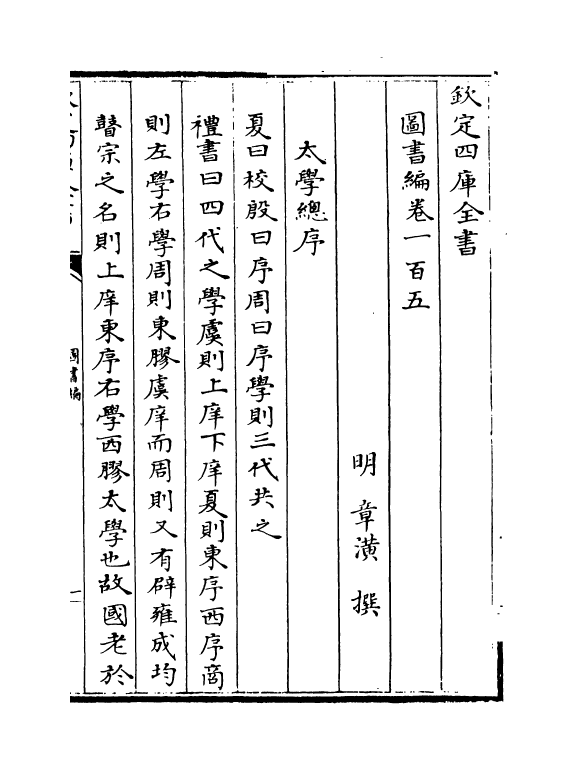 欽定四庫全書
圖書編卷一百五
明 章潢 撰
太學總序
夏曰校殷曰序周曰序學則三代共之
禮書曰四代之學虞則上庠下庠夏則東序西序商
則左學右學周則東膠虞庠而周則又有辟雍成均
瞽宗之名則上庠東序右學西膠太學也故國老於
圖書編
一